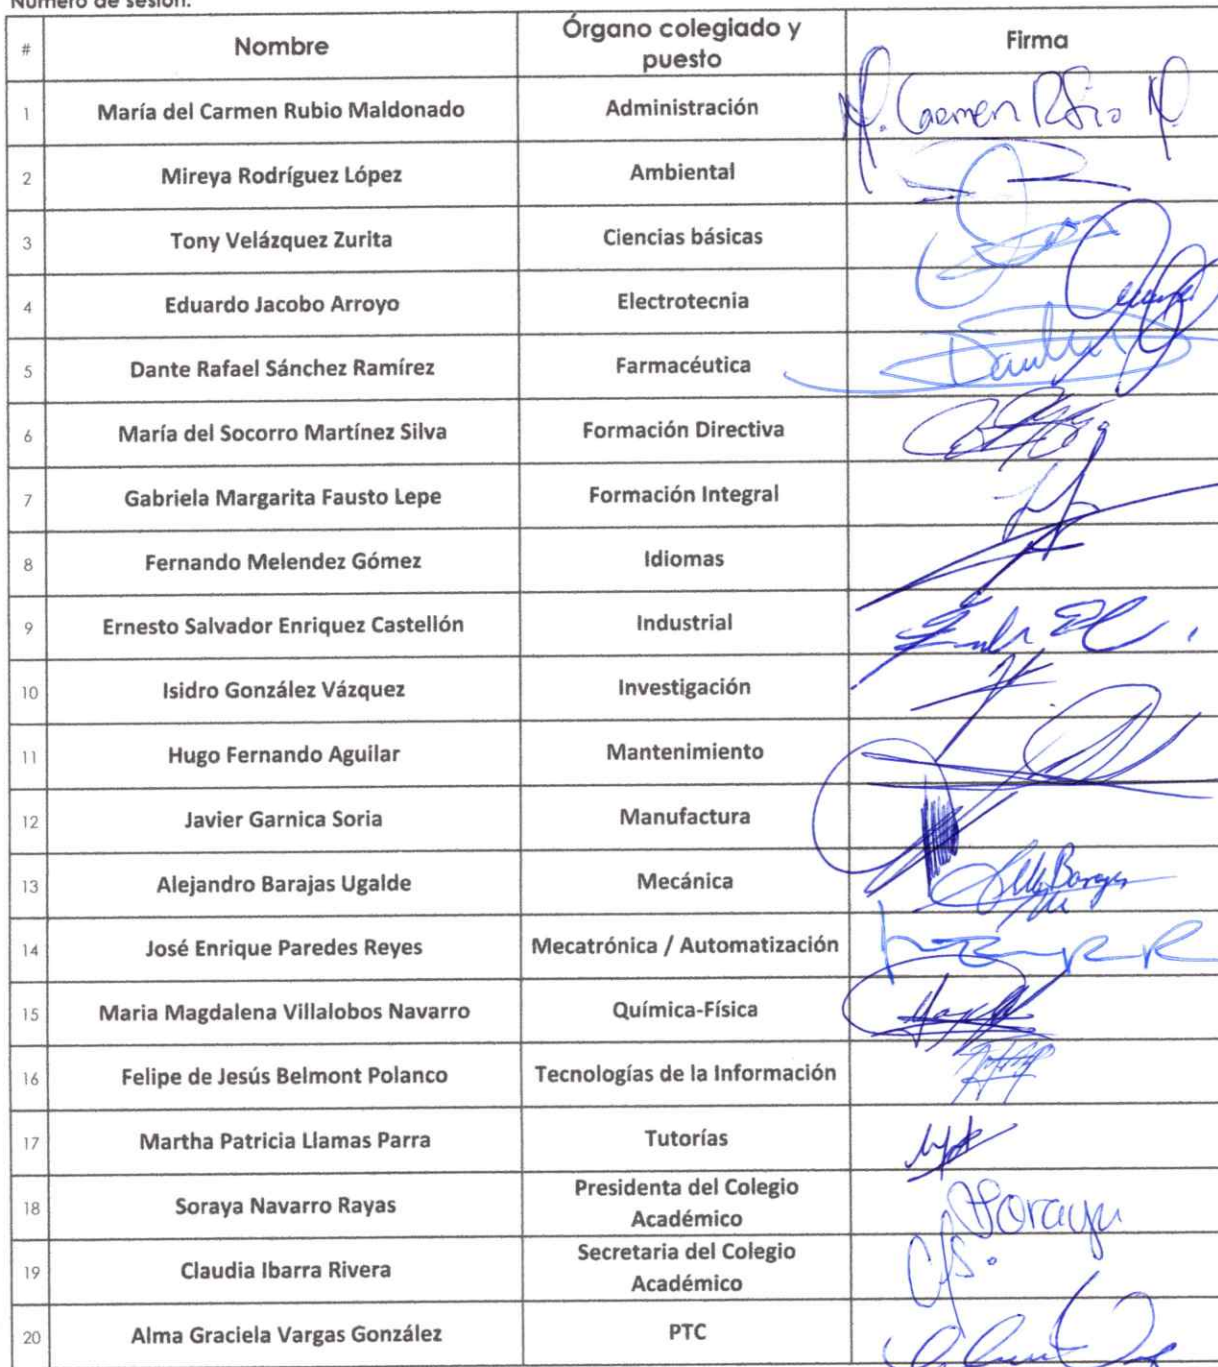 Número de sesión:
# Nombre Órgano colegiado y puesto Firma
1 María del Carmen Rubio Maldonado Administración M. Carmen Rubio M.
2 Mireya Rodríguez López Ambiental
3 Tony Velázquez Zurita Ciencias básicas
4 Eduardo Jacobo Arroyo Electrotecnia
5 Dante Rafael Sánchez Ramírez Farmacéutica
6 María del Socorro Martínez Silva Formación Directiva
7 Gabriela Margarita Fausto Lepe Formación Integral
8 Fernando Melendez Gómez Idiomas
9 Ernesto Salvador Enriquez Castellón Industrial
10 Isidro González Vázquez Investigación
11 Hugo Fernando Aguilar Mantenimiento
12 Javier Garnica Soria Manufactura
13 Alejandro Barajas Ugalde Mecánica
14 José Enrique Paredes Reyes Mecatrónica / Automatización
15 Maria Magdalena Villalobos Navarro Química-Física
16 Felipe de Jesús Belmont Polanco Tecnologías de la Información
17 Martha Patricia Llamas Parra Tutorías
18 Soraya Navarro Rayas Presidenta del Colegio Académico Soraya
19 Claudia Ibarra Rivera Secretaria del Colegio Académico
20 Alma Graciela Vargas González PTC